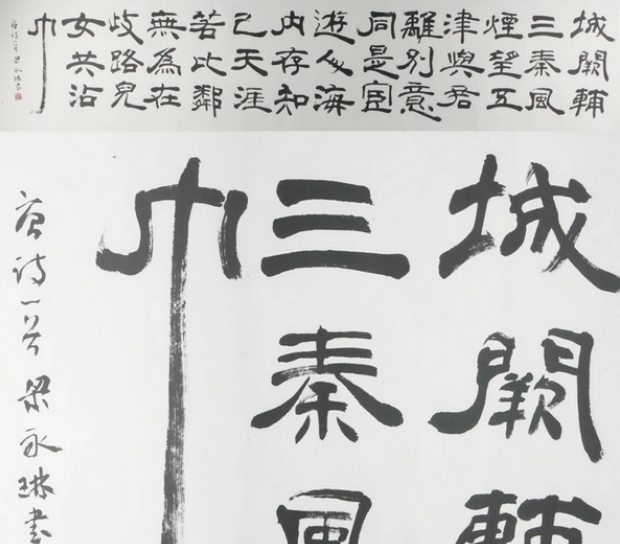 城闕輔
三秦風
煙望五
津與君
離別意
同是宦
遊人海
内存知
己天涯
若比鄰
無為在
歧路兒
女共沾
巾
唐诗一首梁永琳書
城闕輔
三秦風
巾
唐诗一首梁永琳書